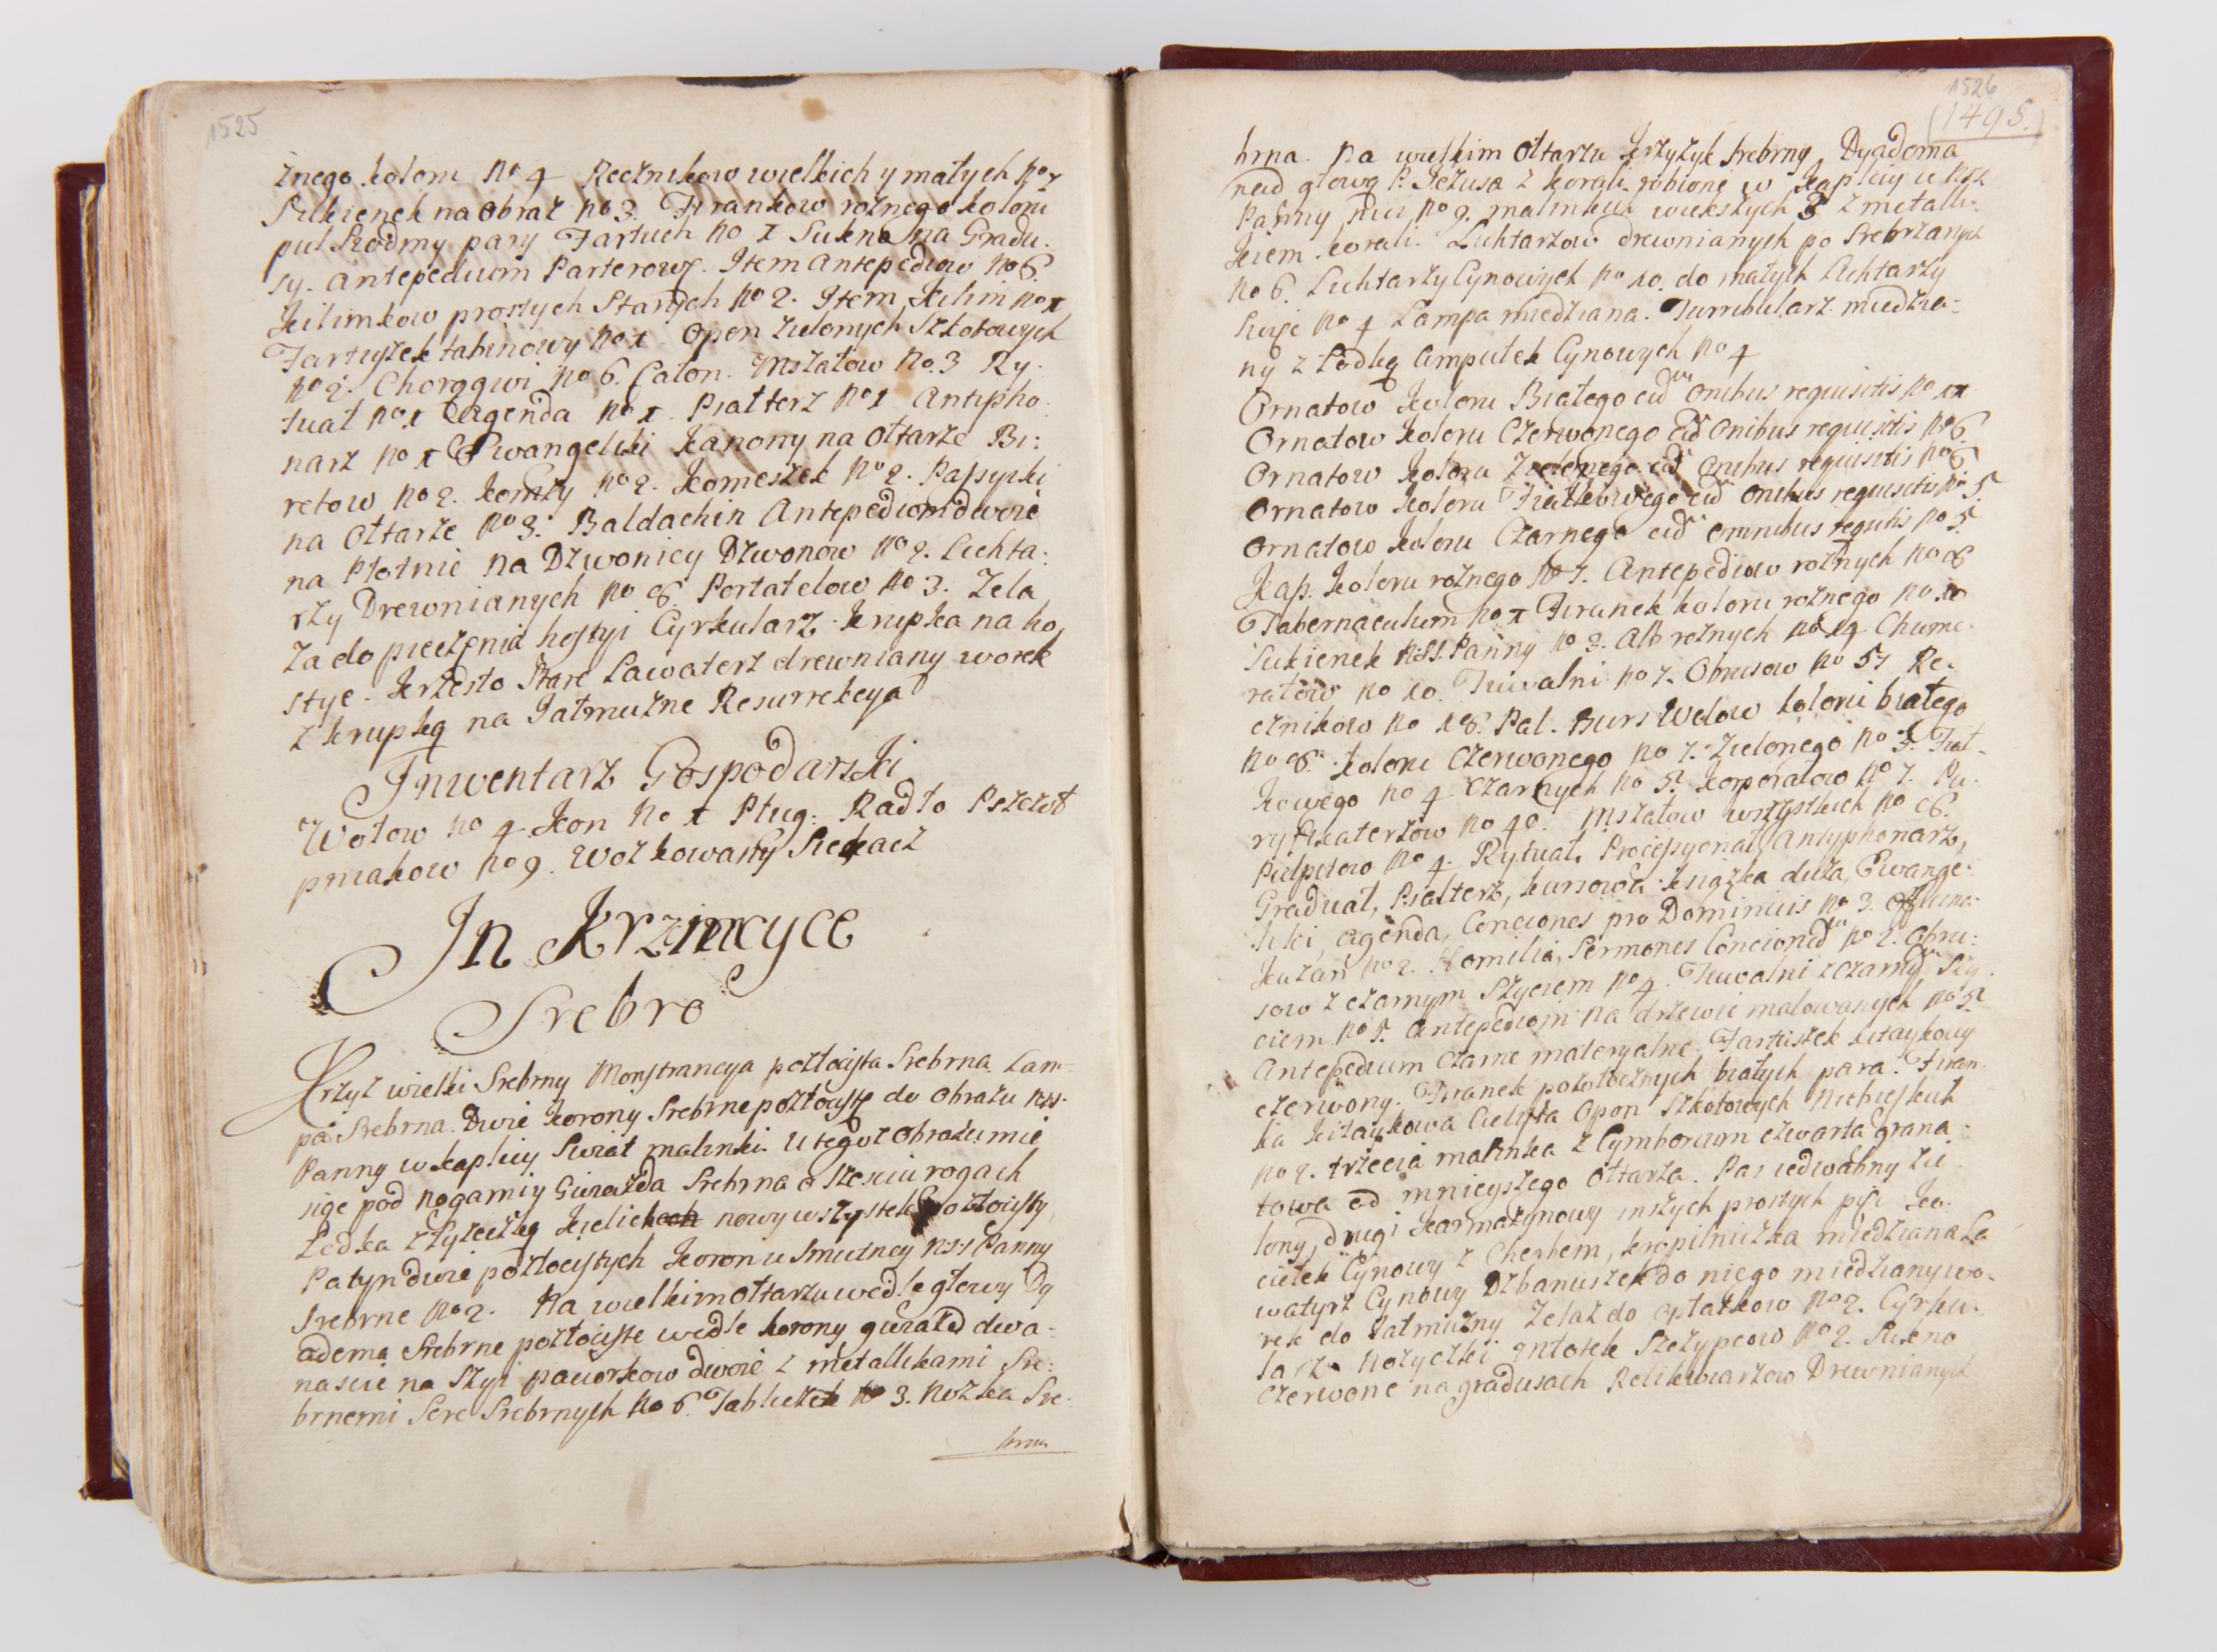 1525
żnego koloru No 4 Ręcznikow wielkich y małych No 7
Sukienek na obraz No 3. Firankow rożnego koloru
puł siodmy pary Fartuch No 1 Sukno na Gradu:
sy. Antepedium Parterowe. Item Antepediow No 6
Kilimkow prostych Starych No 2. Item Kilim No 1
Fartuszek tabinowy No 1 Opon zielonych Szkotowych
No 2. Chorągwi No 6. Caton. Mszałow No. 3 Ry:
tuał No 1 Agenda No 1. Psałterz No 1 Antipho:
narz No 1 Ewangeliki Kanony na Ołtarze Bi:
retow No 2. Komży No 2. Komeszek No 2. Passyiki
na Ołtarze No 3. Baldachin Antepedium dwoie
na Płotnie Na Dzwonicy Dzwonow No 2. Lichta:
rzy Drewnianych No 8 Portatelow No 3. Zela
za do pieczenia hostyi Cyrkularz. Krupka na ho,
stye. Krzesło Stare Lawaterz drewniany worek
z krupką na Jałmużne Resurrekcya
Inwentarz Gospodarski
Wołow No 4 Kon No 1 Pług. Radło Pszczoł
pniakow No 9. Woz kowany Siekacz
In Krzimcyce
Srebro
Krzyż wielki Srebrny Monstrancya pozłocista Srebrna Lam=
pa Srebrna. Dwie Korony Srebrne pozłociste do Obrazu NSS.
Panny w kaplicy Swiat malinki. U tegoż Obrazu mie
siąc pod nogami y Gwiazda Srebrna o szesciu rogach
Łodka z Łyżeczką Kielich nowy wszystek Pozłocisty
Patyn dwie pozłocistych Koron u Smutney NSS Panny
Srebrne No 2. Na wielkim ołtarzu wedle głowy Dy
adema Srebrne pozłociste wedle korony gwiazd dwa=
nascie na Szyi paciorkow dwoie z metallikami Sre:
brnemi Serc Srebrnych No 6 Tabliczek No 3. Nożka Sre.
brna
1526
(1495.)
brna. Na wielkim Ołtarzu Krzyżyk Srebrny Dyadema
nad głową P. Jezusa z korali robione w Kaplicy u NSS
Panny No 9. malinkich wiekszych 3 z metalli:
kiem korali. Lichtarzow drewnianych po Srebrzanych
No 6. Lichtarzy Cynowych No 10. do małych Lichtarzy
No 4 Lampa miedziana. Turribularz miedzia=
ny z Łodką Ampułek Cynowych No 4
Ornatow Koloru Białego cum Onibus requisitis No 11
Ornatow Koloru Czerwonego cum Onibus requisitis No 6
Ornatow Koloru Zielonego cum Onibus requisitis No 6
Ornatow Koloru Fiałkowego cum Onibus requisitis No 5
Ornatow Koloru Czarnego cum Omnibus requtis No 5.
Kap. Koloru rożnego No 7. Antepediow rożnych No 8
Tabernaculum No 1 Firanek koloru rożnego No 10
Sukienek NSS. Panny No 3. Alb rożnych No 14 Chume.
rałow No 10. Tuwalni No 7. Obrusow No 57 Re.
cznikow No 18. Pal. Burs Welow koloru białego
No 8. Koloru Czerwonego No 7. Zielonego No 3. Fiał-
kowego No 4 Czarnych No 5. Korporałow No 7. Pu.
ryfikaterzow No 40. Mszałow wszystkich No 8.
Pulpitow No 4. Rytuał, Processyonał, Antyphonarz,
Graduał, Psałterz, kursowa książka duża, Ewange:
liki, Agenda, Conciones pro Dominicis No 3.
Kazań No 2. Homilia, Sermones Concionum No 2. Obru:
sow z czarnym Szyciem No 4. Tuwalni z czarnym Szy
ciem No 5. Antepediom na drzewie malowanych No 5.
Antepedium czarne materyalne. Fartuszek kitaykowy
czerwony. Firanek pobłocznych białych para. Firan
ka kitaykowa Cielista Opon Szkotowych Niebieskich
No 2. trzecia malinka z Cymborium czwarta grana:
towa od mnieyszego Ołtarza. Pas iedwabny zie
lony, drugi Karmazynowy inszych prostych pięć Ko:
ciełek Cynowy z Cherbem, kropilniczka miedziana La
watyrz Cynowy Dzbanuszek do niego miedziany wo.
rek do Jałmużny Zelaz do opłatkow No 2. Cyrku:
larz Nożyczki Młotek Szczypcow No 2. Sukno
Czerwone na gradusach Relikwiarzow Drewnianych